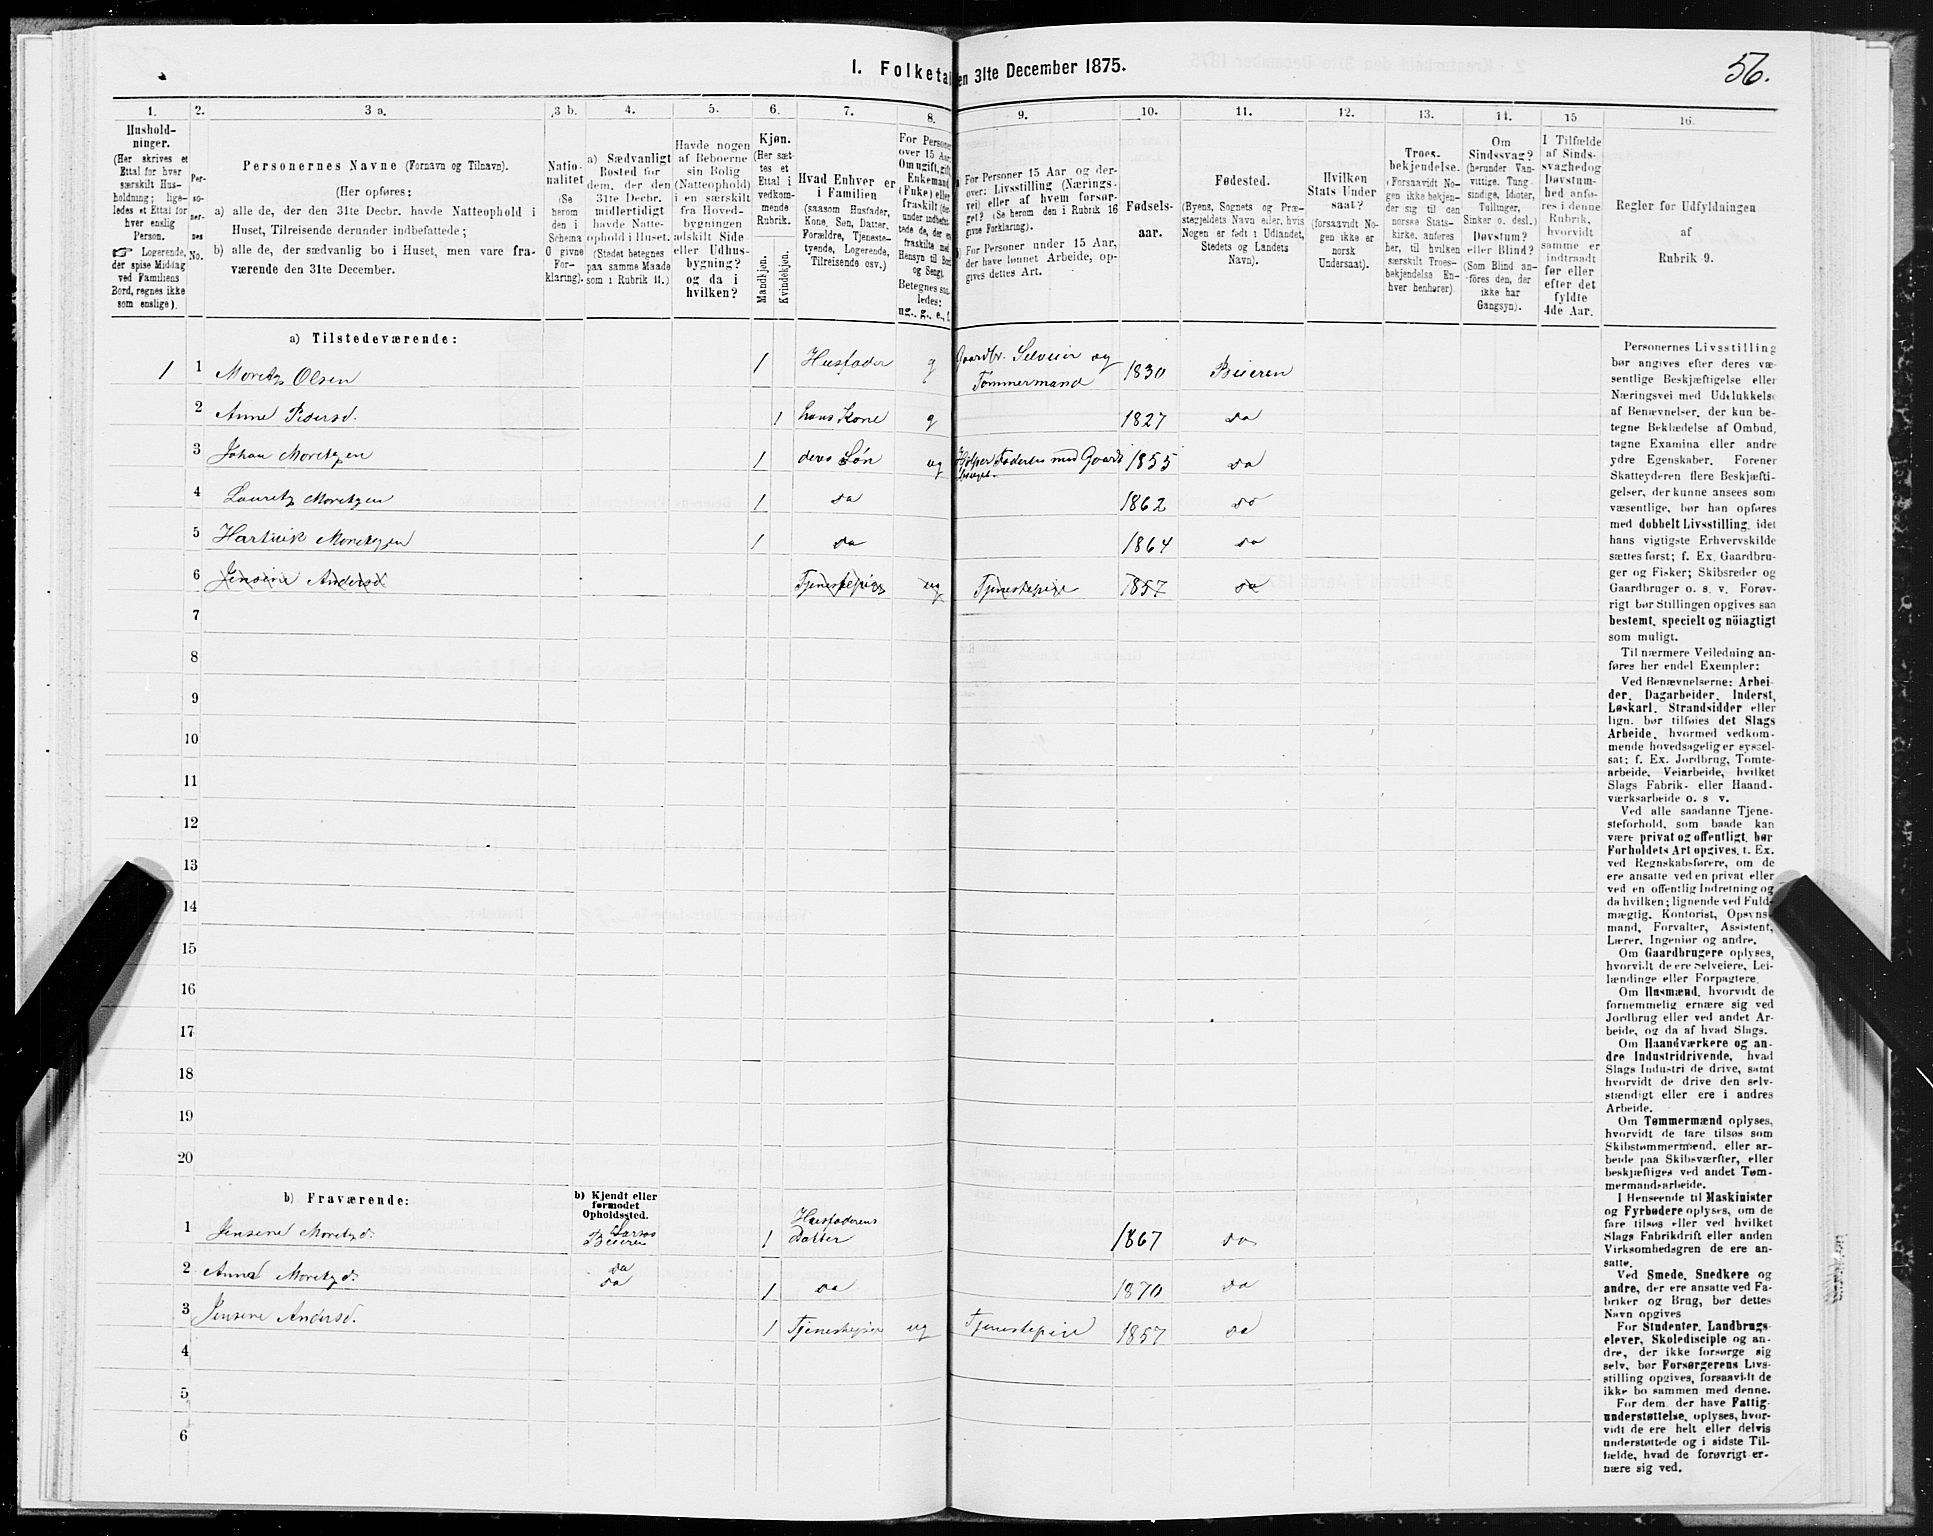 56.
I. Folketal den 31te December 1875.
1.
Hushold-
ninger.
(Her skrives et
Ettal for hver
særskilt Hus-
holdning; lige-
ledes et Ettal for
hver enslig
Person.
☞ Logerende,
der spise Middag
ved Familiens
Bord, regnes ikke
som enslige).
2.
Per-
so-
ner-
nes
No.
3 a.
Personernes Navne (Fornavn og Tilnavn).
(Her opføres:
a) alle de, der den 31te Decbr. havde Natteophold i
Huset, Tilreisende derunder indbefattede;
b) alle de, der sædvanlig bo i Huset, men vare fra-
værende den 31te December.
3 b.
Natio-
nalitet
(Se
herom
den i
Schema
0 givne
For-
klaring).
4.
a) Sædvanligt
Bosted for
dem, der den
31te Decbr.
midlertidigt
havde Natte-
ophold i Huset.
(Stedet betegnes
paa samme Maade
som i Rubrik 11.)
5.
Havde nogen
af Beboerne
sin Bolig
(Natteophold)
i en særskilt
fra Hoved-
bygningen
adskilt Side
eller Udhus-
bygning?
og da i
hvilken?
6.
Kjøn.
(Her sæt-
tes et
Ettal i
vedkom-
mende
Rubrik.
Mandkjøn.
Kvindekjøn.
7.
Hvad Enhver er
i Familien
(saasom Husfader,
Kone, Søn, Datter,
Forældre, Tjeneste-
tyende, Logerende,
Tilreisende osv.)
8.
For Personer
over 15 Aar:
Om ugift, gift,
Enkemand
(Enke) eller
fraskilt (der-
under indbefat-
tede de, der ere
fraskilte med
Hensyn til Bord
og Seng).
Betegnes saa-
ledes:
ug., g., e., f.
9.
a) For Personer 15 Aar og der-
over: Livsstilling (Nærings-
vei) eller af hvem forsør-
get? (Se herom den i Rubrik 16
givne Forklaring).
b) For Personer under 15 Aar,
der have lønnet Arbeide, op-
gives dettes Art.
10.
Fødsels-
aar.
11.
Fødested.
(Byens, Sognets og Præ-
stegjeldets Navn eller, hvis
Nogen er født i Udlandet,
Stedets og Landets
Navn).
12.
Hvilken
Stats Under-
saat?
(forsaavidt No-
gen ikke er
norsk
Undersaat).
13.
Troes-
bekjendelse.
(Forsaavidt No-
gen ikke bekjen-
der sig til den
norske Stats-
kirke, anføres
her, til hvilken
særskilt Troes-
bekjendelse En-
hver henhører).
14.
Om
Sindssvag?
(herunder Van-
vittige, Tung-
sindige, Idioter,
Tullinger,
Sinker o. desl.)
Døvstum?
eller Blind?
(Som Blind an-
føres den, der
ikke har
Gangsyn).
15
I Tilfælde
af Sinds-
svaghed og
Døvstum-
hed anfø-
res i denne
Rubrik,
hvorvidt
samme er
indtraadt
før eller
efter det
fyldte
4de Aar.
16.
Regler for Udfyldningen
af
Rubrik 9.
a) Tilstedeværende:
1 1 Moritz Olsen 1 Husfader g Gaardbr. Selveier og Tømmermand 1830 Beieren
2 Anne Pedersd. 1 hans Kone g 1827 do
3 Johan Moritzen 1 deres Søn ug Hjelper Faderen med Gaards 1855 do
4 Lauritz Moritzen 1 do 1862 do
5 Hartvik Moritzen 1 do 1864 do
6 Jensine Andersd Tjenestepige ug Tjenestepige 1857 do
7
8
9
10
11
12
13
14
15
16
17
18
19
20
b) Fraværende:
b) Kjendt eller
formodet
Opholdssted.
1 Jensine Moritzd. Beieren 1 Husfaderens Datter 1867 do
2 Anna Moritzd. do do 1 do 1870 do
3 Jensine Andersd. 1 Tjenestepige ug Tjenestepige 1857 do
4
5
6
Personernes Livsstilling
bør angives efter deres væ-
sentlige Beskjæftigelse eller
Næringsvei med Udelukkelse
af Benævnelser, der kun be-
tegne Beklædelse af Ombud,
tagne Examina eller andre
ydre Egenskaber. Forener
Skatteyderen flere Beskjæfti-
gelser, der kunne ansees som
væsentlige, bør han opføres
med dobbelt Livsstilling, idet
hans vigtigste Erhvervskilde
sættes først; f. Ex. Gaardbru-
ger og Fisker; Skibsreder og
Gaardbruger o. s. v. Forøv-
rigt bør Stillingen opgives saa
bestemt, specielt og nöiagtigt
som muligt.
Til nærmere Veiledning an-
føres her endel Exempler:
Ved Benævnelserne: Arbei-
der, Dagarbeider, Inderst,
Løskarl, Strandsidder eller
lign. bør tilføies det Slags
Arbeide, hvormed vedkom-
mende hovedsagelig er syssel-
sat; f. Ex. Jordbrug, Tømte-
arbeide, Veiarbeide, hvilket
Slags Fabrik- eller Haand-
værksarbeide o. s. v.
Ved alle saadanne Tjene-
steforhold, som baade kan
være privat og offentligt, bør
Forholdets Art opgives, f. Ex.
ved Regnskabsførere, om de
ere ansatte ved en privat eller
ved en offentlig Indretning og
da hvilken; lignende ved Fuld-
mægtig, Kontorist, Opsyns-
mand, Forvalter, Assistent,
Lærer, Ingeniør og andre.
Om Gaardbrugere oplyses,
hvorvidt de ere Selveiere, Lei-
lændinge eller Forpagtere.
Om Husmænd, hvorvidt de
fornemmelig ernære sig ved
Jordbrug eller ved andet Ar-
beide, og da af hvad Slags.
Om Haandværkere og an-
dre Industridrivende, hvad
Slags Industri de drive, samt
hvorvidt de drive den selv-
stændigt eller ere i andres
Arbeide.
Om Tømmermænd oplyses,
hvorvidt de fare tilsøs som
Skibstømmermænd, eller ar-
beide paa Skibsværfter, eller
beskjæftiges ved andet Tøm-
mermandsarbeide.
I Henseende til Maskinister
og Fyrbødere oplyses, om de
fare tilsøs eller ved hvilket
Slags Fabrikdrift eller anden
Virksomhedsgren de ere an-
satte.
Ved Smede, Snedkere og
andre, der ere ansatte ved Fa-
briker og Brug, bør dettes
Navn opgives
For Studenter, Landbrugs-
elever, Skoledisciple og an-
dre, der ikke forsørge sig
selv, bør Forsørgerens Livs-
stilling opgives, forsaavidt de
ikke bo sammen med denne.
For dem, der have Fattig-
understøttelse, oplyses, hvor-
vidt de ere helt eller delvis
understøttede og i sidste Til-
fælde, hvad de forøvrigt er-
nære sig ved.